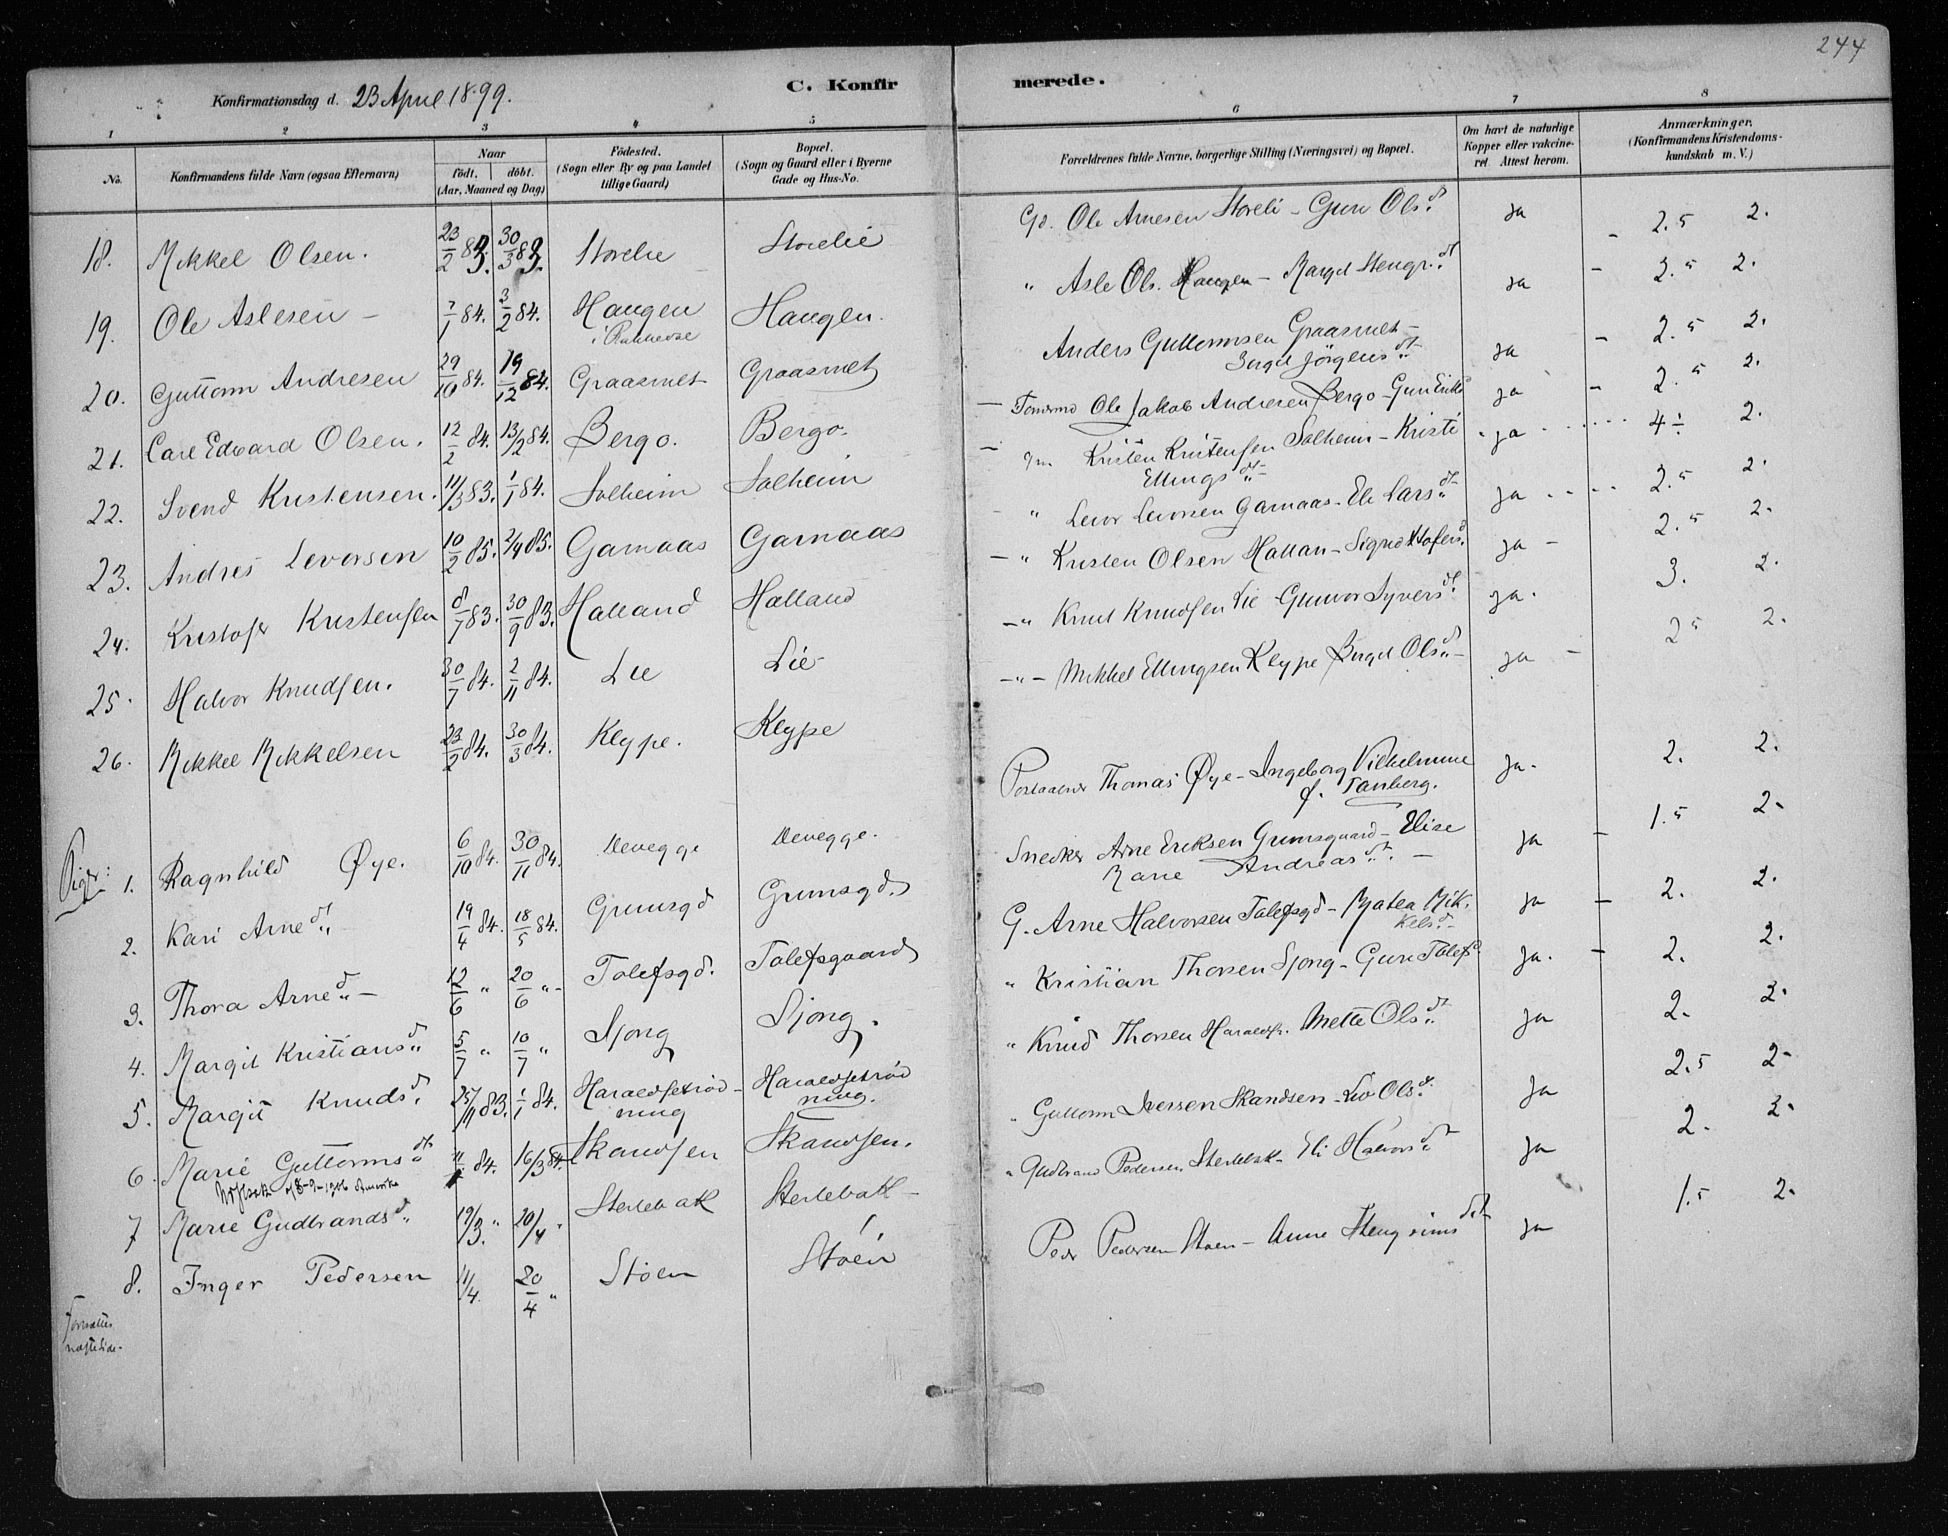 244
Konfirmationsdag d. 23 April 1899.
C. Konfirmerede.
1 2 3 4 5 6 7 8
No.
Konfirmandens fulde Navn (ogsaa Efternavn)
Naar
födt. döbt.
(Aar, Maaned og Dag)
Födested.
(Sogn eller By og paa Landet
tillige Gaard)
Bopæl.
(Sogn og Gaard eller i Byerne
Gade og Hus-No.
Forældrenes fulde Navne, borgerlige Stilling (Næringsvei) og Bopæl.
Om havt de naturlige
Kopper eller vakcine-
ret. Attest herom.
Anmærkninger.
(Konfirmandens Kristendoms-
kundskab m. V.)
18. Mikkel Olsen. 23/2 83. 30/3 83. Storelie Storelie Gd. Ole Arnesen Storeli - Guri Olsd. ja 2.5 2.
19. Ole Aslesen - 84. 3/2 84. Haugen Haugen. " Asle Ols. Haugen - Margit Stengr.dt ja - 2.5 2.
20. Guttorm Andresen 29/10 84. 19/12 84. Graasmet Graasmet Anders Guttormsen Graasmet -
Birgit Jörgensdt ja - 2.5 2.
21. Carl Edvard Olsen. 12/2 84. 13/2 84. Bergo. Bergo. Ole Jakob Andresen Bergo - Guri Eriks ja - 2.5 2.
22. Svend Kristensen. 11/3 83. 1/1 84. Solheim Solheim Kristen Kristensen Solheim - Kristi
Ellingsdt ja 4÷ 2.
23. Andres Levorsen 10/2 85. 2/4 85. Garnaas Garnaas " Levor Levorsen Garnaas - Eli Larsdt ja 2.5 2.
24. Kristofer Kristensen 8/7 83. 30/9 83. Halland Halland - " Kristen Olsen Hallan - Sigrid Ktofersd. ja - 2.5 2.
25. Halvor Knudsen. 30/7 84. 2/11 84. Lie Lie - " Knut Knudsen Lie - Gunvor Syversdt ja. 3. 2.
26. Mikkel Mikkelsen 23/2 84. 30/3 84. Klype. Klype - " - Mikkel Ellingsen Klype Birgit Olsd - ja - 25 2.
Piger:
1. Ragnhild Øye. 6/10 84. 30/11 84. Devegge Devegge. Thomas Øye - Ingeborg Vilhelmine
f. Tanberg. ja. 2. 2.
2. Kari Arnedt 19/4 84. 18/5 84. Grimsgd Grimsgd. Snedker Arne Eriksen Grimsgaard - Elise
Marie Andreasdt. - ja - 1.5 2.
3. Thora Arned - 12/6 " 20/6 " - Tolefsgd. Tolefsgaard G. Arne Halvorsen Tolefsgd - Matea Mik-
kelsd - ja - 2. 2.
4. Margit Kristiansd 5/7 " 10/7 " Sjong Sjong. " Kristian Thorsen Sjong - Guri Tolefsd ja. - 2. 2.
5. Margit Knudsd 25/11 83. 1/1 84. Haraldsetrød-
ning Haraldsetrød
ning. " Knud Thorsen Haraldss. Mette Olsdt ja 2. 2.
6. Marie Guttormsdt 84. 16/3 84. Skandsen Skandsen. " Guttorm Iversen Skandsen - Liv Olsd. ja 2.5 2-
8-2-1906 Amerika
7 Marie Gudbrandsd 19/3. " 20/4 " Sterlebak Sterlebak - " Gudbrand Pedersen Sterlebak - Eli Halvorsdt ja 2. 2.
8. Inger Pedersen 11/4 20/4 " Stöen Stöen Peder Pedersen Stoen - Anne Stengrimsdt ja 1.5 2.
Forsættes
næste Side.